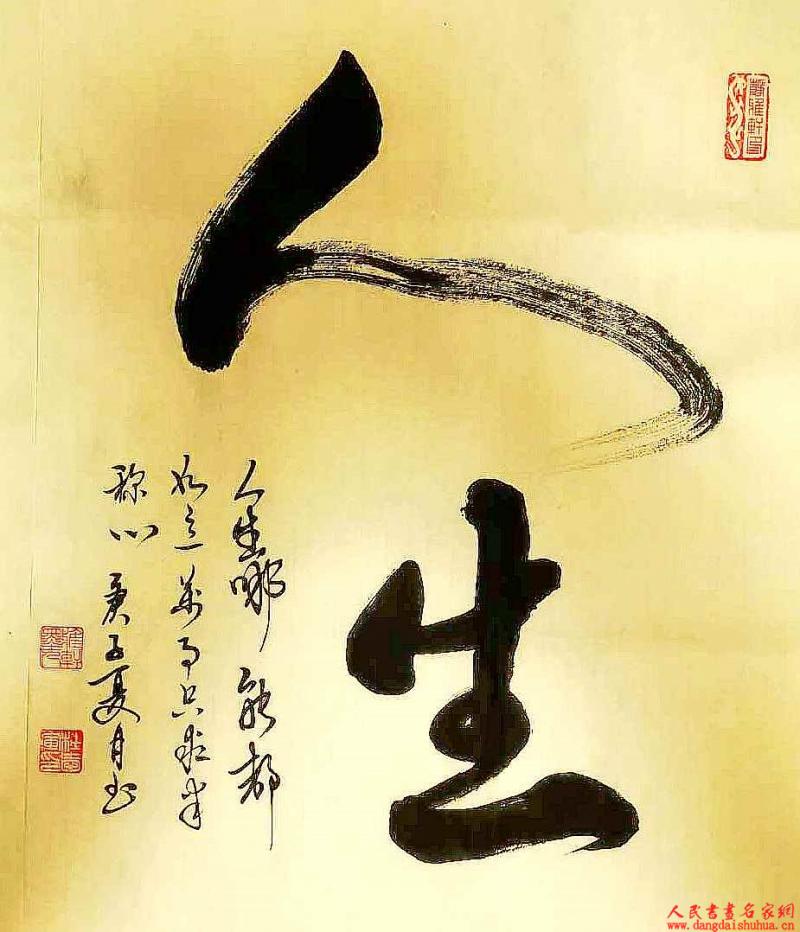 人生
人生哪能都
如意萬事只求半
称心 庚子夏月书
人民書畫名家網
www.dangdaishuhua.cn